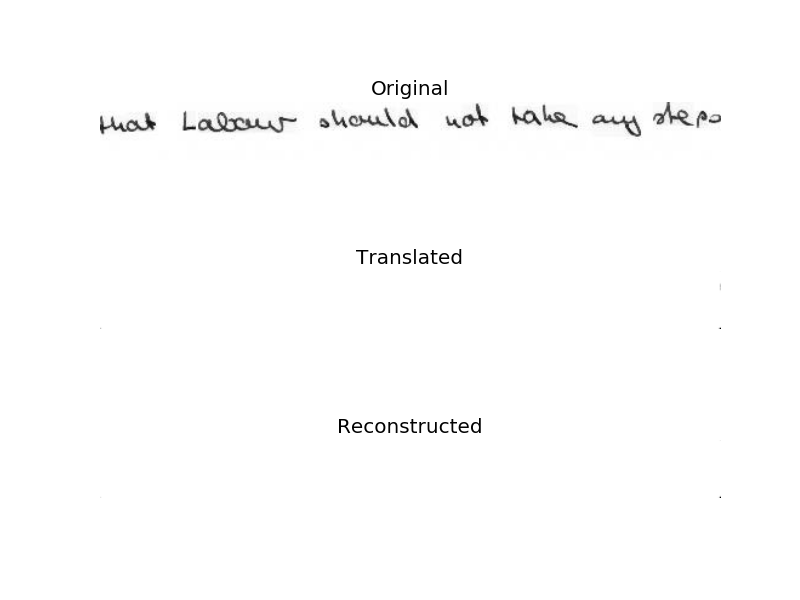 Original
that Labour should not take any steps
Translated
Reconstructed